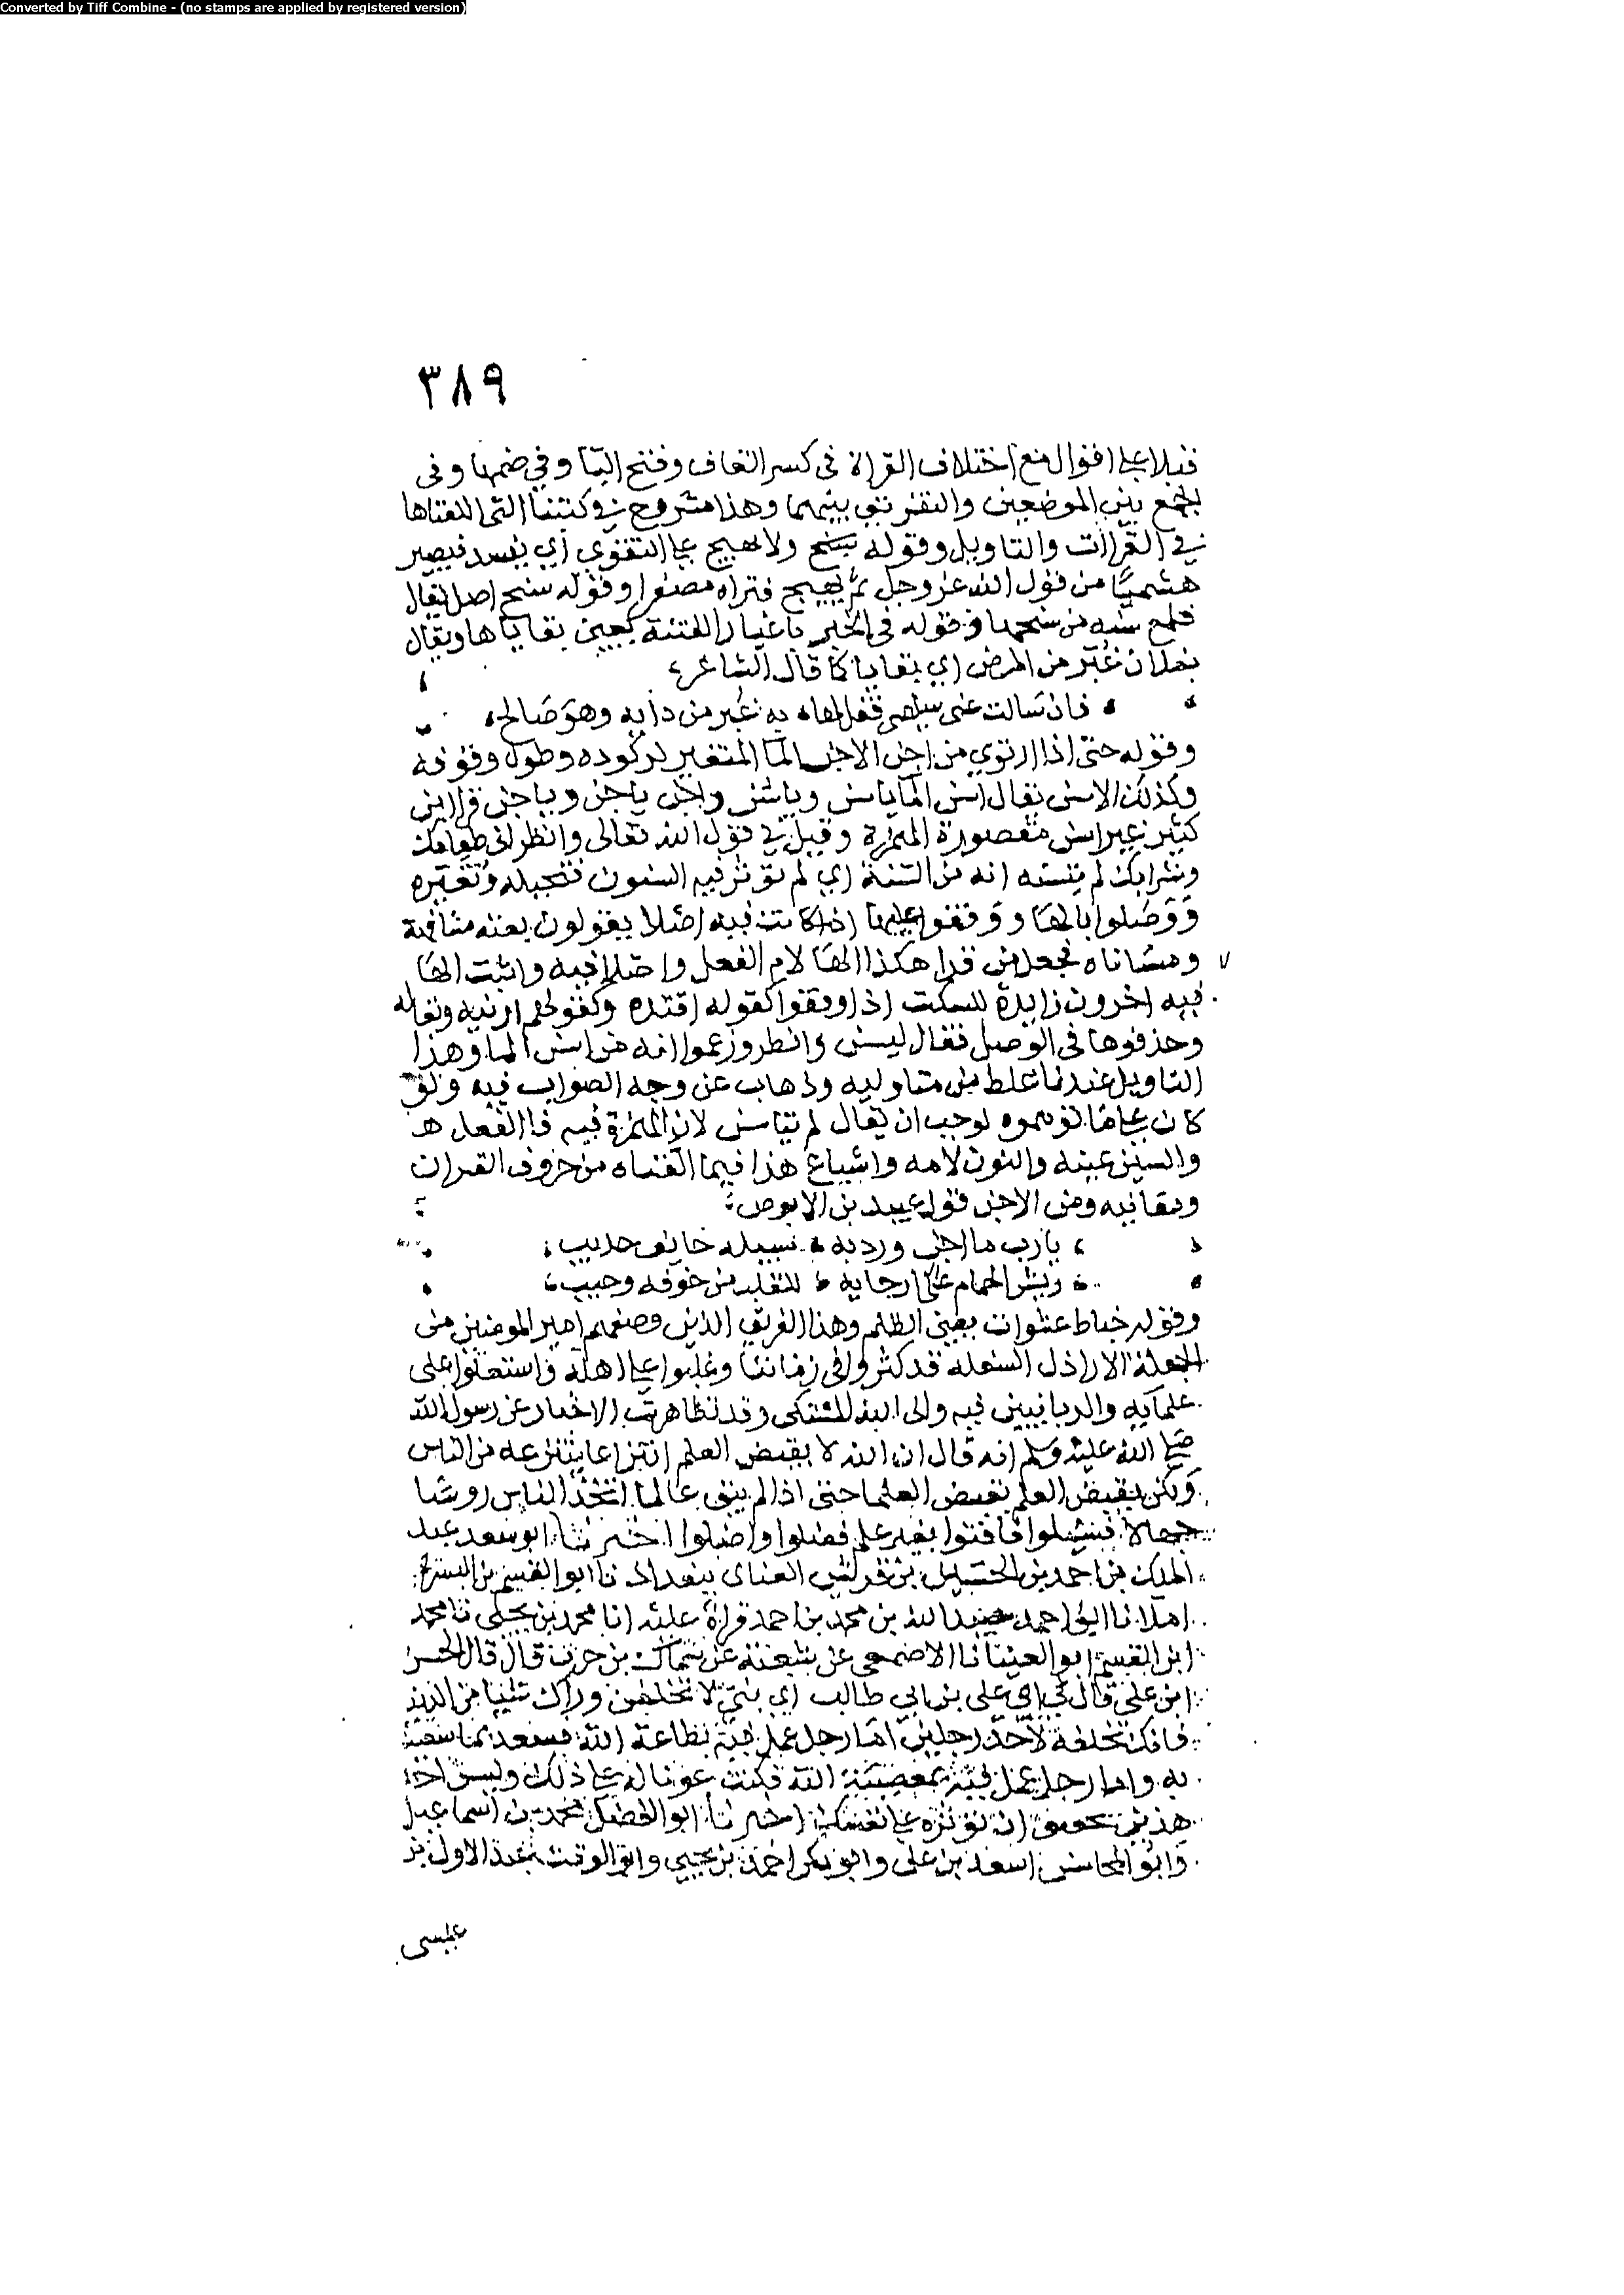 Converted by Tiff Combine - (no stamps are applied by registered version)
٣٨٩
قبلا على اقوال مع اختلاف القراة في كسر القاف وفتح البا وفي ضمها وفى
الجمع بين الموضعين والتفريق بينهما وهذا مشروح في كتبنا التي الفناها
في القراات والتاويل وقوله سنخ ولا يهيج على التقوي أي يفسد فيصير
هشيما من قول الله عز وجل ثم يهيج فتراه مصفرا وقوله سنخ اصل يقال
قلع سنه من سنخها وقوله في الخبر باغبار الفتنة يعين بقاياها ويقال
بفلان غبر من المرض اي بقايا كما قال الشاعر
فان سالت عنى سليمى فقل لها به غبر من دايه وهو صالح
وقوله حتى اذا ارتوي من اجن الاجن الما المتغير لركوده وطول وقوفه
وكذلك الاسن يقال اسن الما ياسن وياسن واجن ياجن وياجن قرا ابن
كثير غير اسن مقصورة الهمزة وقيل في قول الله تعالى وانظر الى طعامك
وشرابك لم يتسنه انه من السنة اي لم تؤثر فيه السنون فتحيله وتغيره
ووصلوا بالها ووقفوا عليها اذا كانت فيه اصلا يقولون بعته مسانهة
ومساناه فجعل من قرا هكذا الها لام الفعل واصلا فيه واثبت الها
فيه اخرون زايدة للسكت اذا وقفوا كقوله اقتده وكقولهم ارتيه وتعاله
وحذفوها في الوصل فقال يتسن وانظر وزعموا انه من اسن الما وهذا
التاويل عندنا غلط من متاوليه وذهاب عن وجه الصواب فيه ولو
كان على ما توهموه لوجب ان يقال لم يتاسن لان الهمزة فيه فا الفعل
والسين عينه والنون لامه واشباع هذا فيما الفناه من حروف القران
ومعانيه ومن الاجن قول عبيد بن الابرص
يا رب ما اجن وردته سبيله خايف جديب
ريش الحمام على ارجايه للقلب من خوفه وجيب
وقوله خباط عشوات يعني الظلم وهذا الفريق الذين وصفهم امير المومنين من
الجهلة الاراذل السفله قد كثروا في زماننا وغلبوا على اهله واستعلوا على
علمايه والربانيين فيه والى الله المشتكى وقد تظاهرت الاخبار عن رسول الله
صلى الله عليه وسلم انه قال ان الله لا يقبض العلم انتزاعا ينتزعه من الناس
ولكن يقبض العلم بقبض العلما حتى اذا لم يبق عالما اتخذ الناس روسا
جهالا فسئلوا فافتوا بغير علم فضلوا واضلوا اخبرنا ابو سعد عبد
الملك بن احمد بن الحسين بن قريش العتابى ببغداد نا ابو القسم بن البسرى
املا نا ابو احمد عبيد الله بن محمد بن احمد قراة عليه انا محمد بن يحيى نا محمد
ابن القسم ابو العينا نا الاصمعى عن شعبة عن سماك بن حرب قال قال الحسن
ابن على قال لي ابي على بن ابي طالب اي بني لا تخلفن وراك شيئا من الدنيا
فانك تخلفه لاحد رجلين اما رجل عمل فيه بطاعة الله فسعد بما شقيت
به واما رجل عمل فيه بمعصية الله فكنت عونا له على ذلك وليس احد
هذين بحقيق ان تؤثره على نفسك اخبرنا ابو الفضل محمد بن اسماعيل
وابو المحاسن اسعد بن على وابو بكر احمد بن يحيي وابو الوقت عبد الاول بن
عيسى